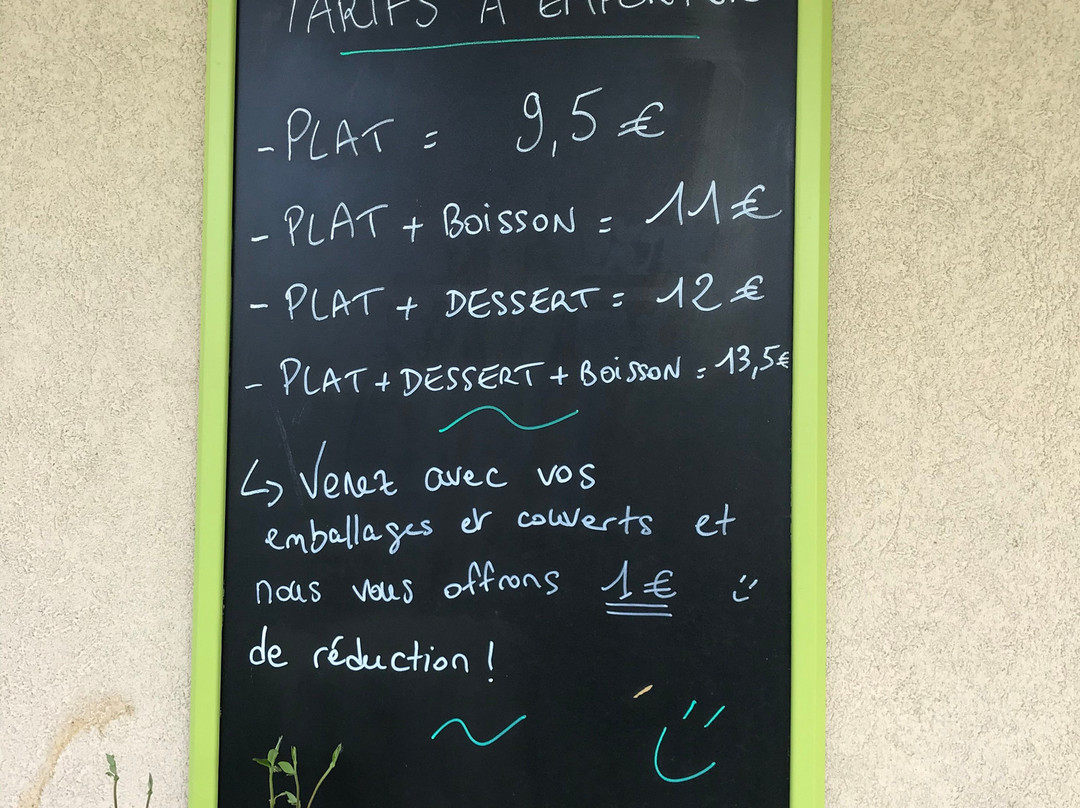 TARIFS À EMPORTER
- PLAT = 9,5 €
- PLAT + BOISSON = 11 €
- PLAT + DESSERT = 12 €
- PLAT + DESSERT + BOISSON = 13,5 €
↳ Venez avec vos
emballages et couverts et
nous vous offrons 1 €
de réduction !